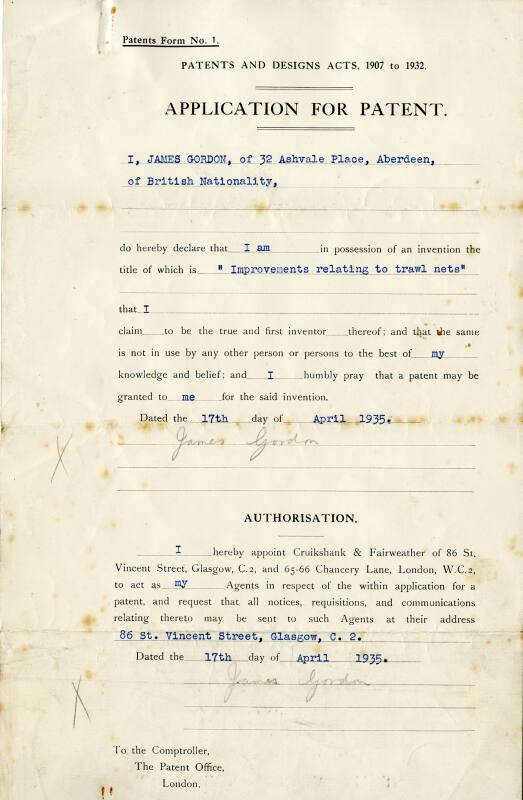 Patents Form No. 1.
PATENTS AND DESIGNS ACTS, 1907 to 1932.
APPLICATION FOR PATENT.
I, JAMES GORDON, of 32 Ashvale Place, Aberdeen,
of British Nationality,
do hereby declare that I am in possession of an invention the
title of which is " Improvements relating to trawl nets"
that I
claim to be the true and first inventor thereof; and that the same
is not in use by any other person or persons to the best of my
knowledge and belief; and I humbly pray that a patent may be
granted to me for the said invention.
Dated the 17th day of April 1935.
James Gordon
AUTHORISATION.
I hereby appoint Cruikshank & Fairweather of 86 St.
Vincent Street, Glasgow, C.2, and 65-66 Chancery Lane, London, W.C.2,
to act as my Agents in respect of the within application for a
patent, and request that all notices, requisitions, and communications
relating thereto may be sent to such Agents at their address
86 St. Vincent Street, Glasgow, C. 2.
Dated the 17th day of April 1935.
James Gordon
To the Comptroller,
The Patent Office,
London.